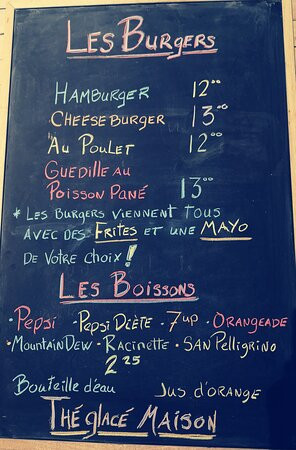 Les Burgers
Hamburger 12.00
Cheeseburger 13.00
Au Poulet 12.00
Guedille au
Poisson Pané 13.00
* Les Burgers viennent tous
avec des Frites et une Mayo
de votre choix !
Les Boissons
· Pepsi · Pepsi Diète · 7up · Orangeade
· Mountain Dew · Racinette · San Pelligrino
2.25
Bouteille d'eau Jus d'orange
Thé glacé Maison